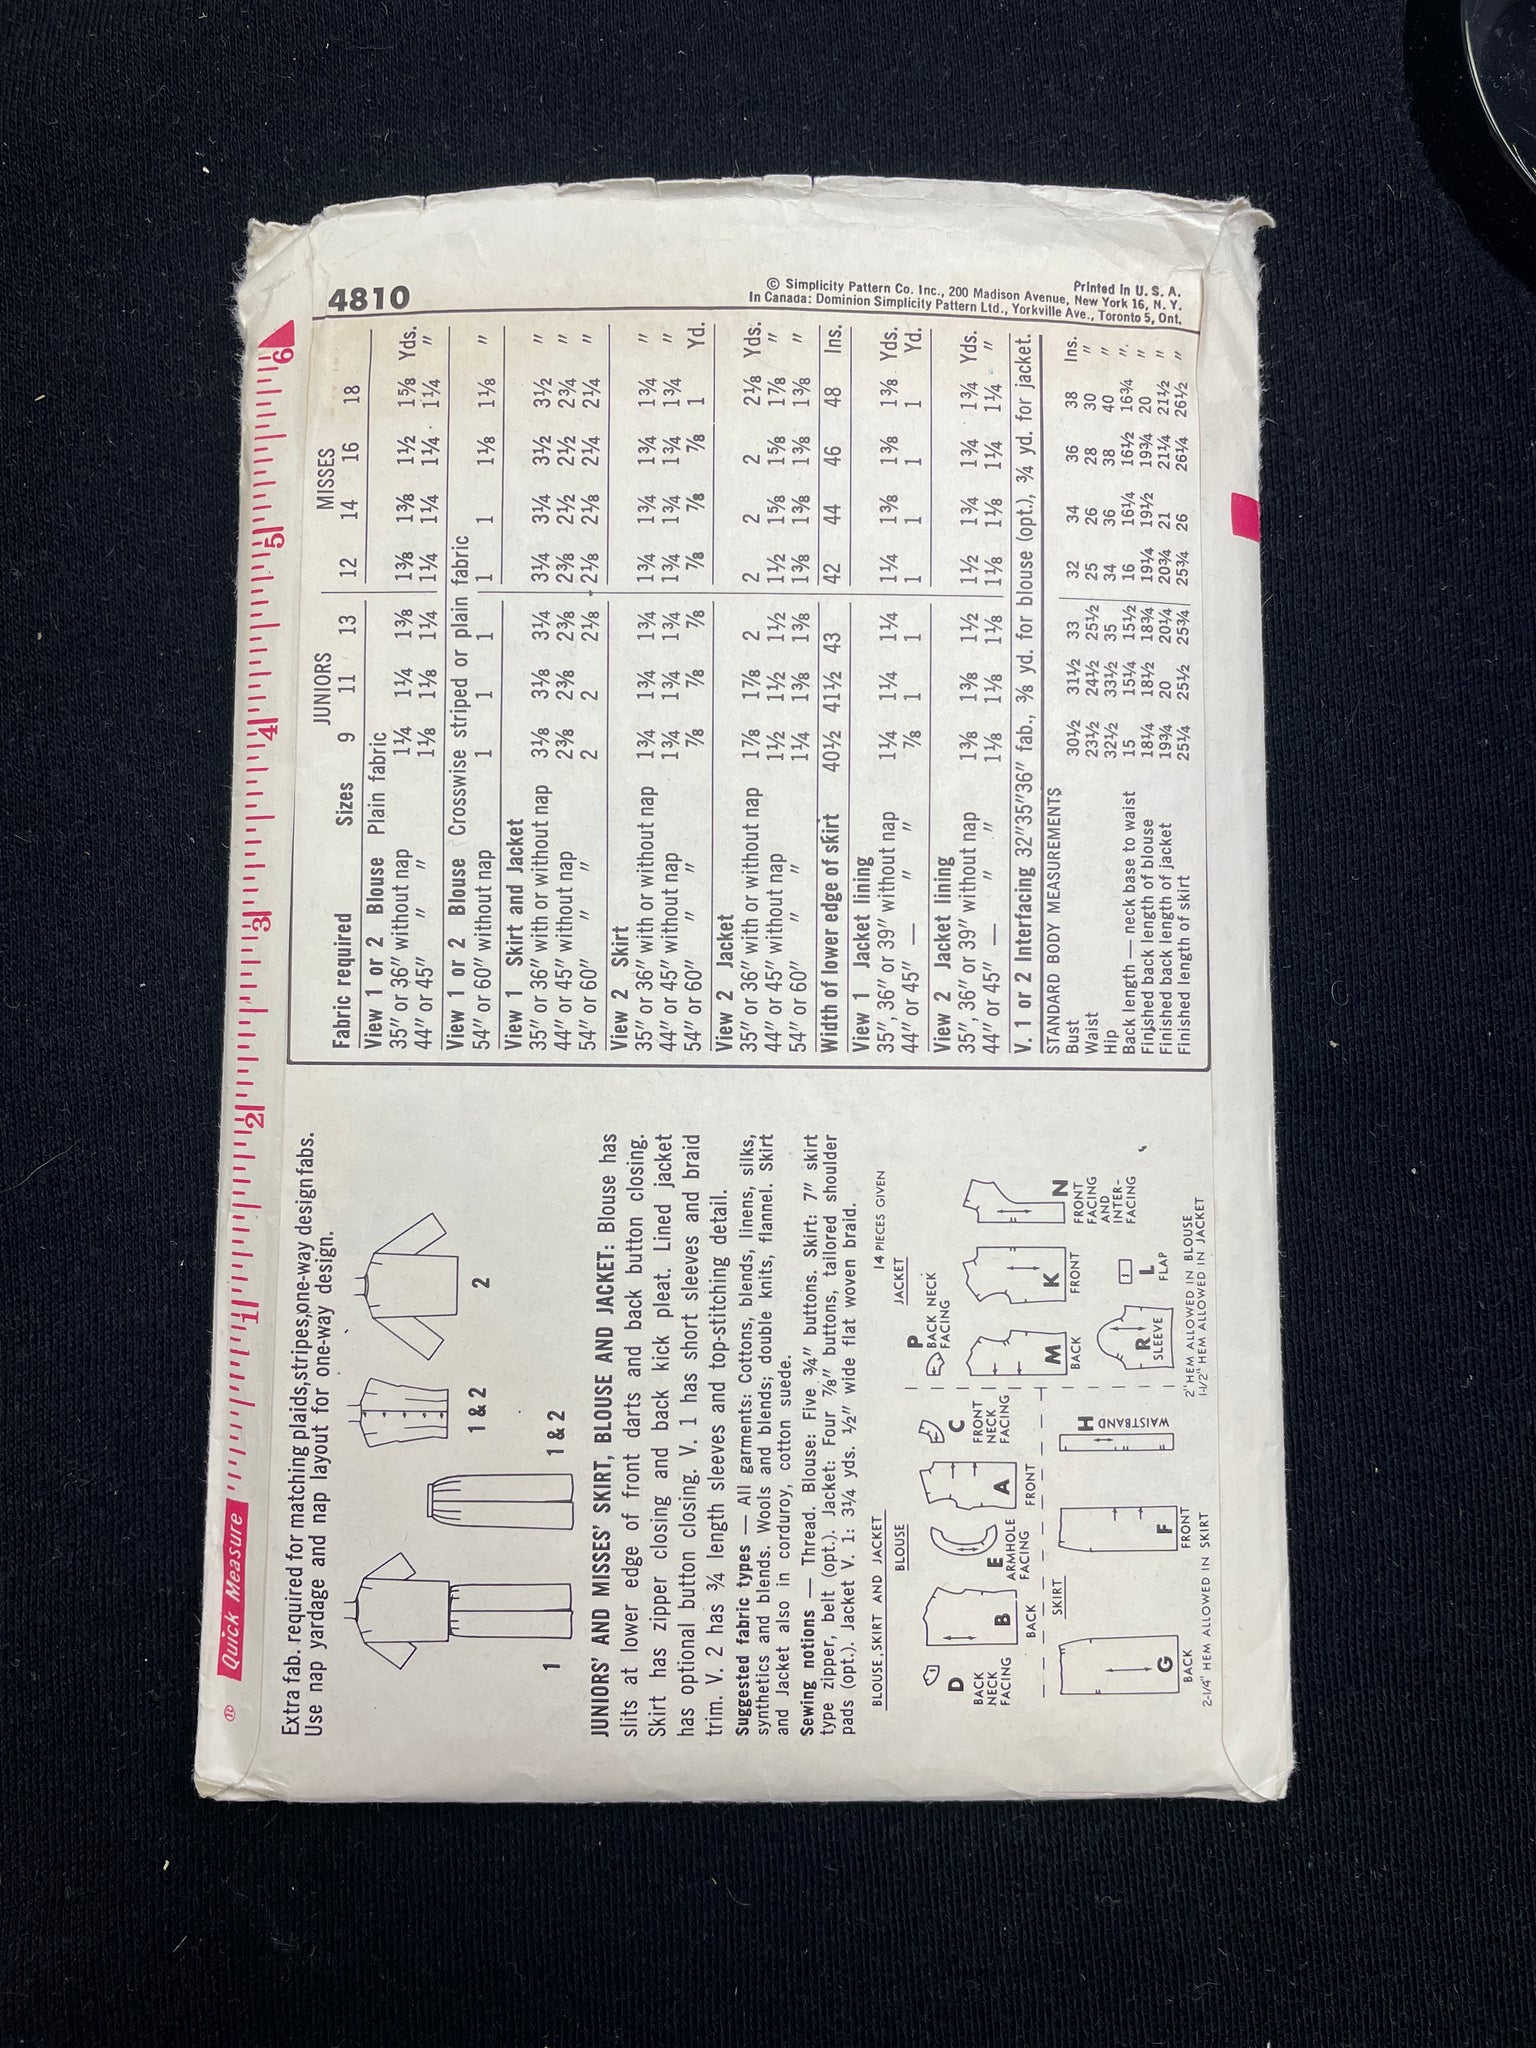 Quick Measure 1 2 3 4 5 6
Extra fab. required for matching plaids, stripes, one-way design fabs.
Use nap yardage and nap layout for one-way design.
1
1 & 2
1 & 2
2
JUNIORS' AND MISSES' SKIRT, BLOUSE AND JACKET: Blouse has
slits at lower edge of front darts and back button closing.
Skirt has zipper closing and back kick pleat. Lined jacket
has optional button closing. V. 1 has short sleeves and braid
trim. V. 2 has ¾ length sleeves and top-stitching detail.
Suggested fabric types — All garments: Cottons, blends, linens, silks,
synthetics and blends. Wools and blends; double knits, flannel. Skirt
and Jacket also in corduroy, cotton suede.
Sewing notions — Thread. Blouse: Five ¾" buttons. Skirt: 7" skirt
type zipper, belt (opt.). Jacket: Four ⅞" buttons, tailored shoulder
pads (opt.). Jacket V. 1: 3¼ yds. ½" wide flat woven braid.
BLOUSE, SKIRT AND JACKET 14 PIECES GIVEN
BLOUSE
D
BACK
NECK
FACING
B
BACK
E
ARMHOLE
FACING
A
FRONT
C
FRONT
NECK
FACING
SKIRT
G
BACK
F
FRONT
H
WAISTBAND
2-1/4" HEM ALLOWED IN SKIRT
JACKET
P
BACK NECK
FACING
M
BACK
K
FRONT
N
FRONT
FACING
AND
INTER-
FACING
R
SLEEVE
L
FLAP
2" HEM ALLOWED IN BLOUSE
1-1/2" HEM ALLOWED IN JACKET
4810
JUNIORS MISSES
Fabric required Sizes 9 11 13 12 14 16 18
View 1 or 2 Blouse Plain fabric
35" or 36" without nap 1¼ 1¼ 1⅜ 1⅜ 1⅜ 1½ 1⅝ Yds.
44" or 45" " 1⅛ 1⅛ 1¼ 1¼ 1¼ 1¼ 1¼ "
View 1 or 2 Blouse Crosswise striped or plain fabric
54" or 60" without nap 1 1 1 1 1 1⅛ 1⅛ "
View 1 Skirt and Jacket
35" or 36" with or without nap 3⅛ 3⅛ 3¼ 3¼ 3¼ 3½ 3½ "
44" or 45" without nap 2⅜ 2⅜ 2⅜ 2⅜ 2½ 2½ 2¾ "
54" or 60" " 2 2 2⅛ 2⅛ 2⅛ 2¼ 2¼ "
View 2 Skirt
35" or 36" with or without nap 1¾ 1¾ 1¾ 1¾ 1¾ 1¾ 1¾ "
44" or 45" without nap 1¾ 1¾ 1¾ 1¾ 1¾ 1¾ 1¾ "
54" or 60" " ⅞ ⅞ ⅞ ⅞ ⅞ ⅞ 1 Yd.
View 2 Jacket
35" or 36" with or without nap 1⅞ 1⅞ 2 2 2 2 2⅛ Yds.
44" or 45" without nap 1½ 1½ 1½ 1½ 1⅝ 1⅝ 1⅞ "
54" or 60" " 1¼ 1⅜ 1⅜ 1⅜ 1⅜ 1⅜ 1⅜ "
Width of lower edge of skirt 40½ 41½ 43 42 44 46 48 Ins.
View 1 Jacket lining
35", 36" or 39" without nap 1¼ 1¼ 1¼ 1¼ 1⅜ 1⅜ 1⅜ Yds.
44" or 45" — " ⅞ 1 1 1 1 1 1 Yd.
View 2 Jacket lining
35", 36" or 39" without nap 1⅜ 1⅜ 1½ 1½ 1¾ 1¾ 1¾ Yds.
44" or 45" — " 1⅛ 1⅛ 1⅛ 1⅛ 1⅛ 1¼ 1¼ "
V. 1 or 2 Interfacing 32"35"36" fab., ⅜ yd. for blouse (opt.), ¾ yd. for jacket.
STANDARD BODY MEASUREMENTS
Bust 30½ 31½ 33 32 34 36 38 Ins.
Waist 23½ 24½ 25½ 25 26 28 30 "
Hip 32½ 33½ 35 34 36 38 40 "
Back length — neck base to waist 15 15¼ 15½ 16 16¼ 16½ 16¾ "
Finished back length of blouse 18¼ 18½ 18¾ 19¼ 19½ 19¾ 20 "
Finished back length of jacket 19¾ 20 20¼ 20¾ 21 21¼ 21½ "
Finished length of skirt 25¼ 25½ 25¾ 25¾ 26 26¼ 26½ "
Printed In U. S. A.
© Simplicity Pattern Co. Inc., 200 Madison Avenue, New York 16, N. Y.
In Canada: Dominion Simplicity Pattern Ltd., Yorkville Ave., Toronto 5, Ont.